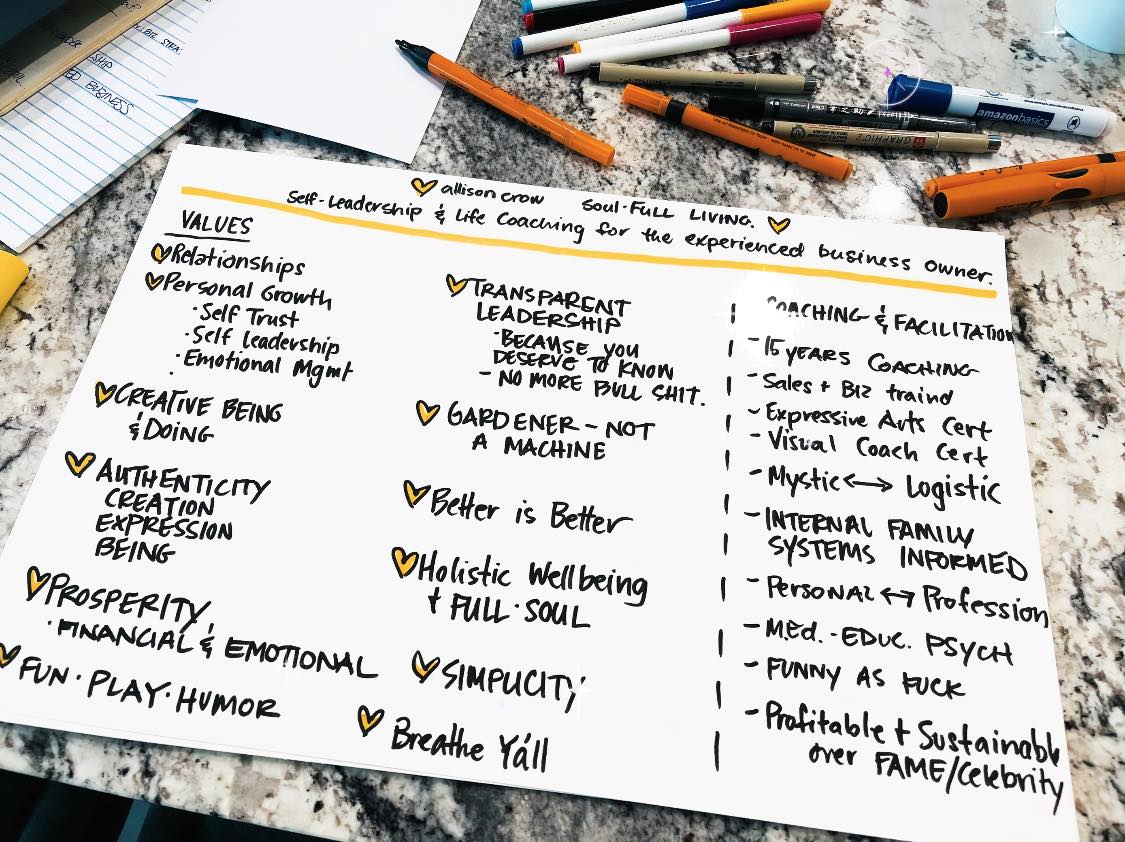 BIZ STRA
SHIP
ED BUSINESS
amazonbasics
allison crow SOUL·FULL LIVING.
Self-Leadership & Life Coaching for the experienced business owner.
VALUES
Relationships
Personal Growth
· Self Trust
· Self Leadership
· Emotional Mgmt
·
CREATIVE BEING
& DOING
AUTHENTICITY
CREATION
EXPRESSION
BEING
PROSPERITY
· FINANCIAL & EMOTIONAL
FUN · PLAY · HUMOR
TRANSPARENT
LEADERSHIP
· BECAUSE YOU
DESERVE TO KNOW
- NO MORE BULL SHIT.
GARDENER - NOT
A MACHINE
Better is Better
Holistic Wellbeing
+ FULL·SOUL
SIMPLICITY
Breathe Ya'll
COACHING & FACILITATION
- 15 YEARS COACHING
- Sales + Biz traind
- Expressive Arts Cert
- Visual Coach Cert
- Mystic <-> Logistic
- INTERNAL FAMILY
SYSTEMS INFORMED
- PERSONAL <-> Profession
- M.Ed. - EDUC. PSYCH
- FUNNY AS FUCK
- Profitable + Sustainable
over FAME/Celebrity